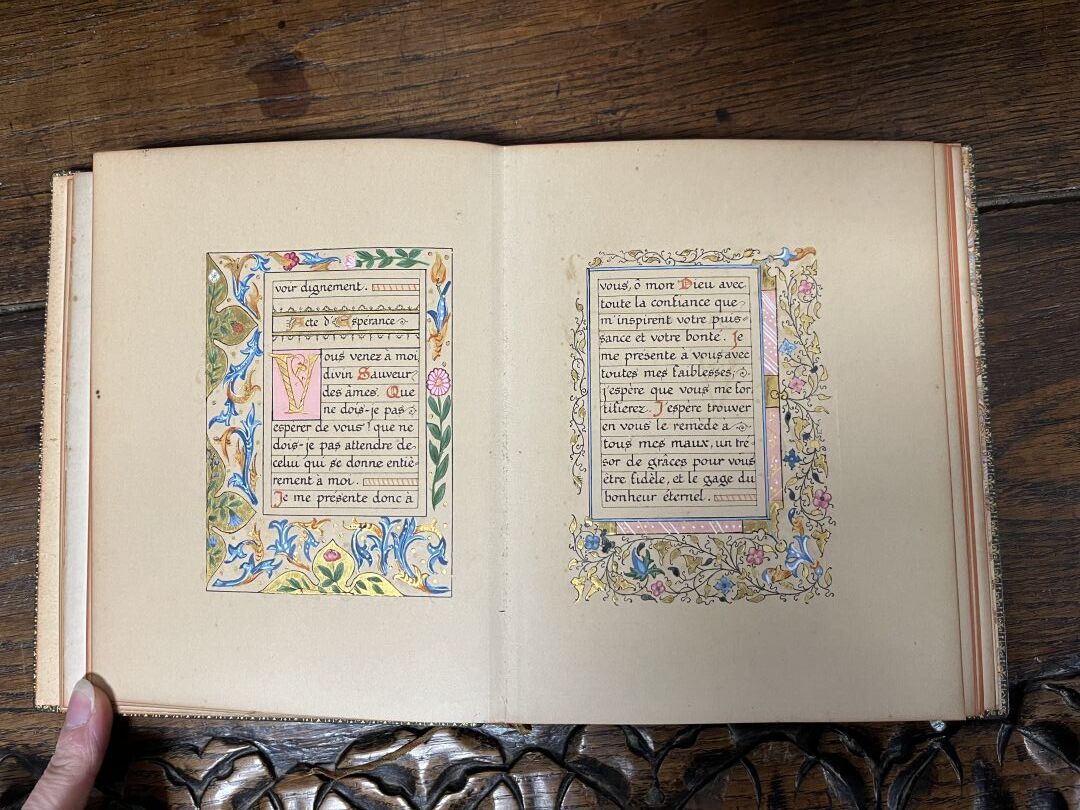 voir dignement.
Acte d'Espérance
Vous venez à moi
divin Sauveur
des âmes. Que
ne dois-je pas
espérer de vous! que ne
dois-je pas attendre de
celui qui se donne entiè-
rement à moi.
Je me présente donc à
vous, ô mon Dieu avec
toute la confiance que
m'inspirent votre puis-
sance et votre bonté. Je
me présente à vous avec
toutes mes faiblesses,
j'espère que vous me for
tifierez. J'espère trouver
en vous le remède à
tous mes maux, un tré-
sor de grâces pour vous
être fidèle, et le gage du
bonheur éternel.